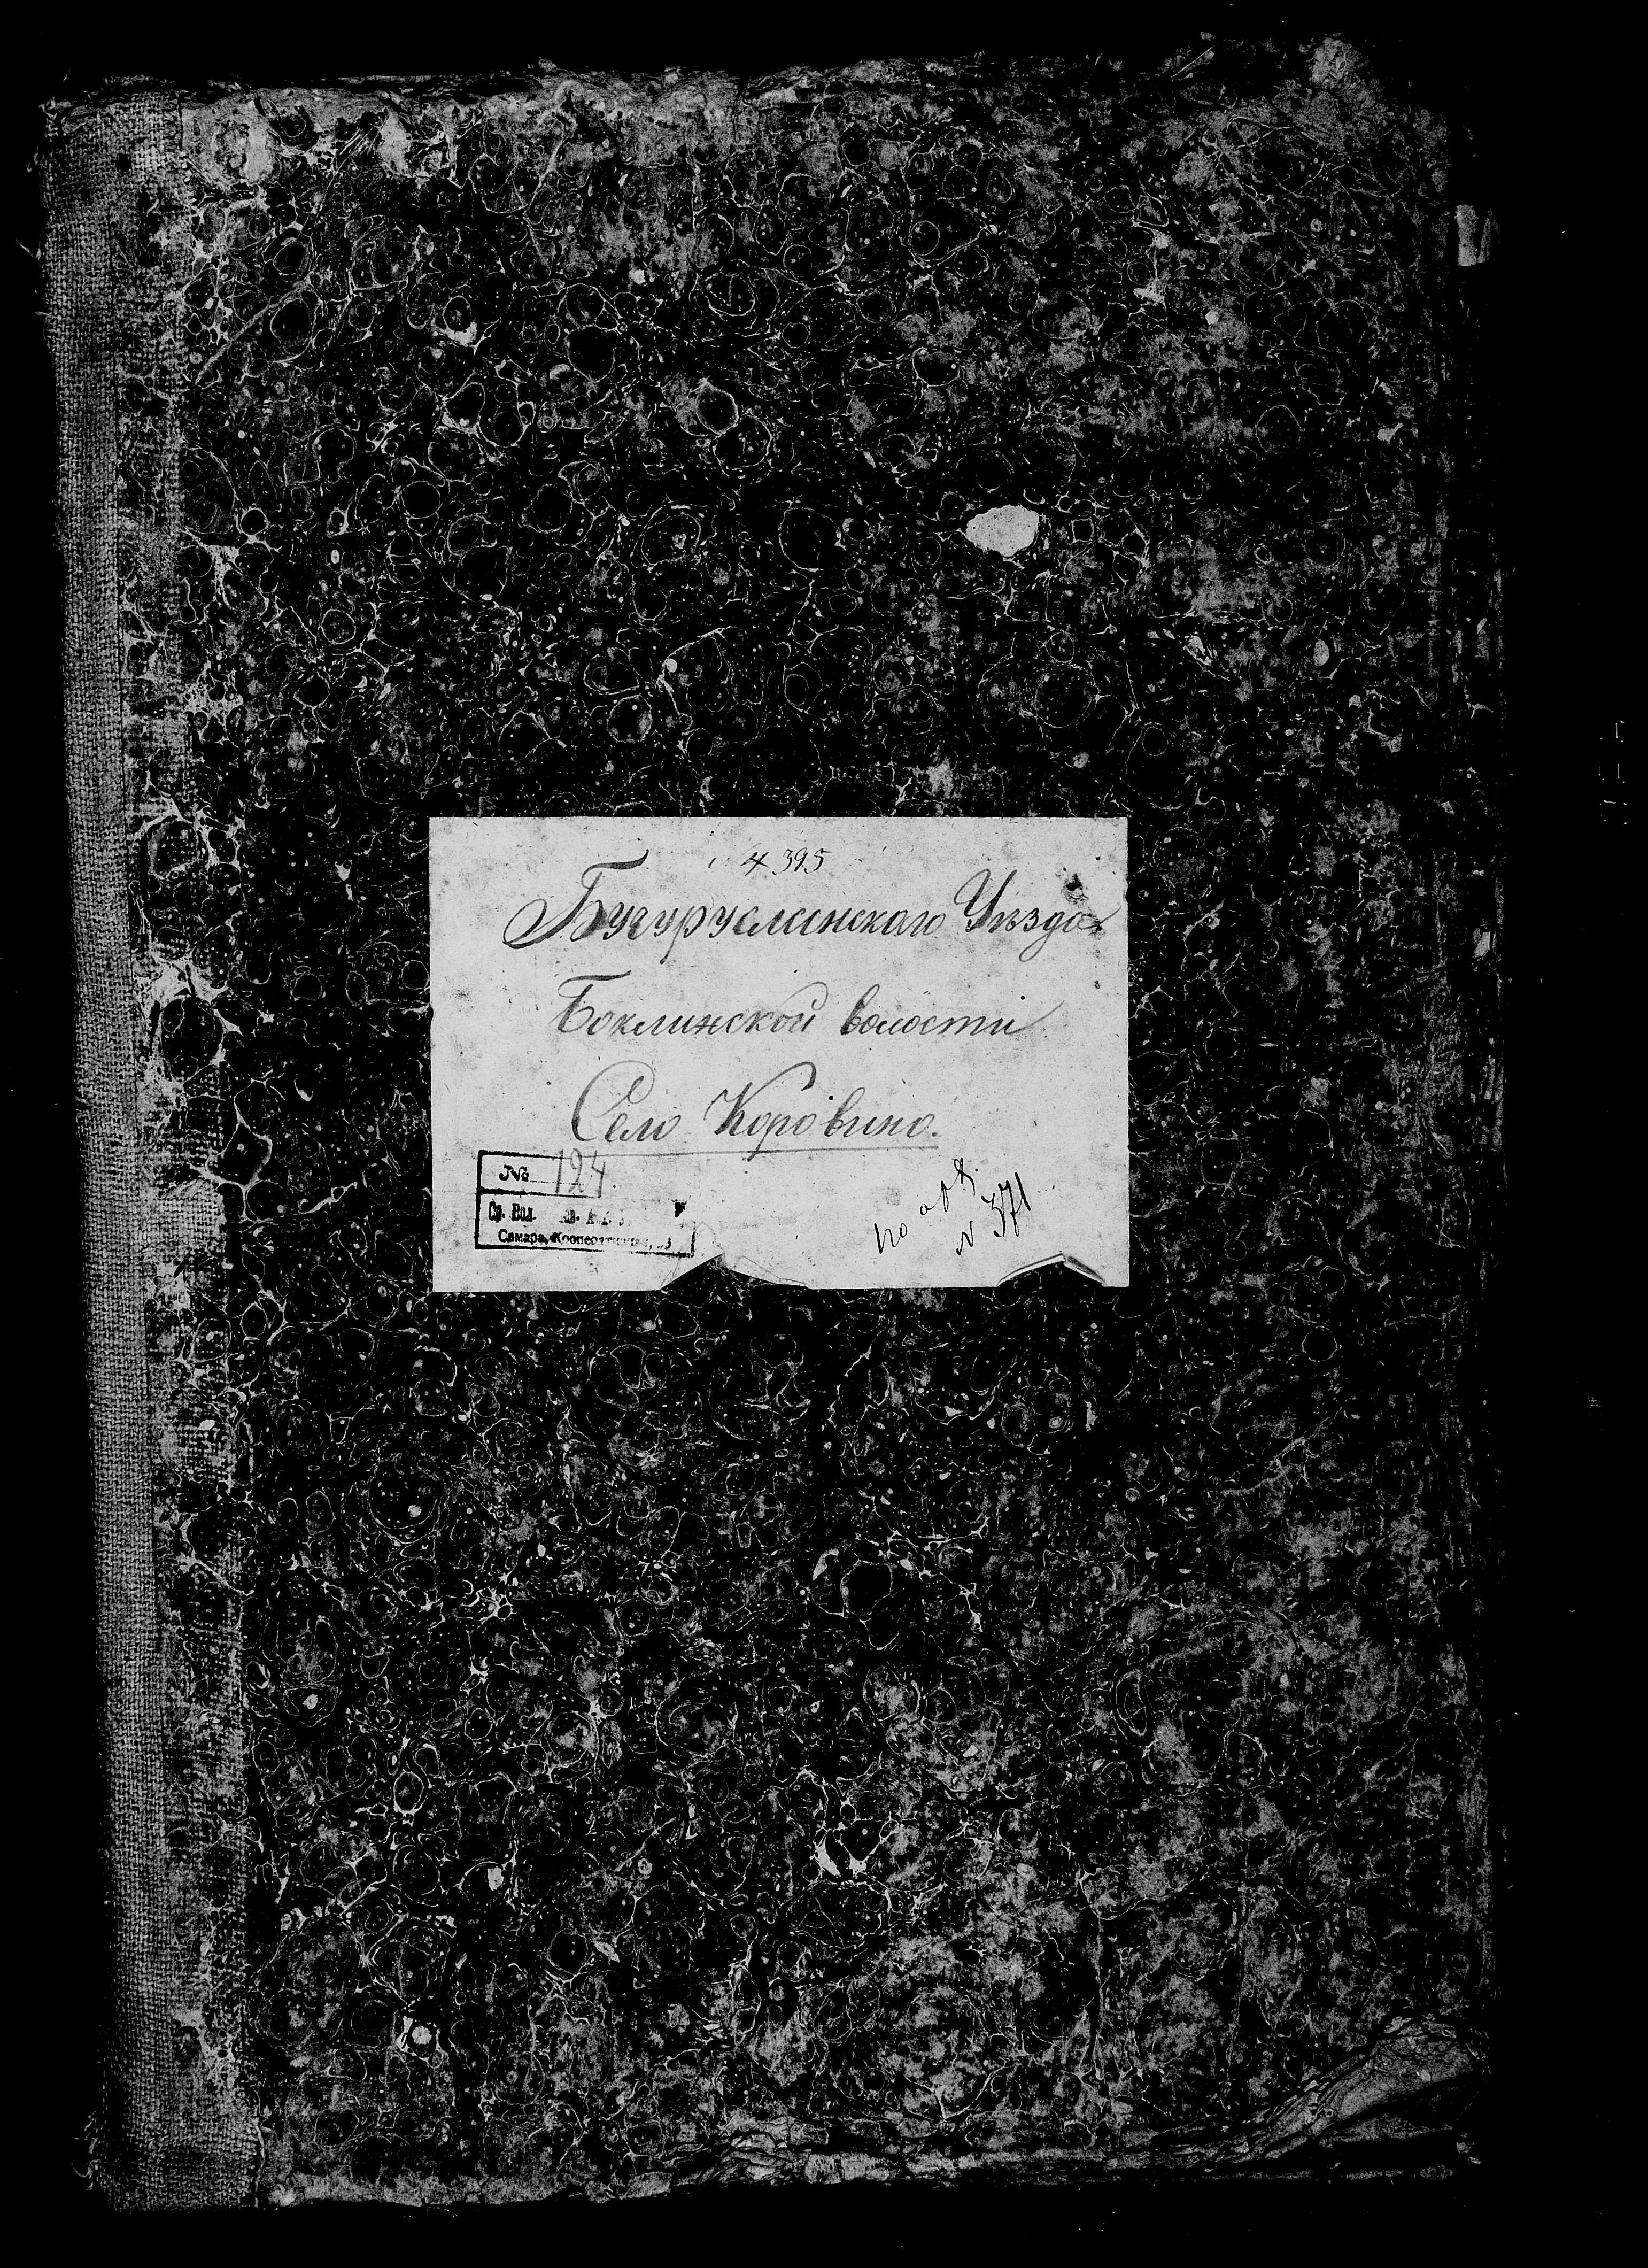 4395
Бугурусланскаго Уѣзда
Боклинской волости
Село Коровино.
№ 124
Ср. Вол.
Самара, Кооперативная, 53
по оп
N 371